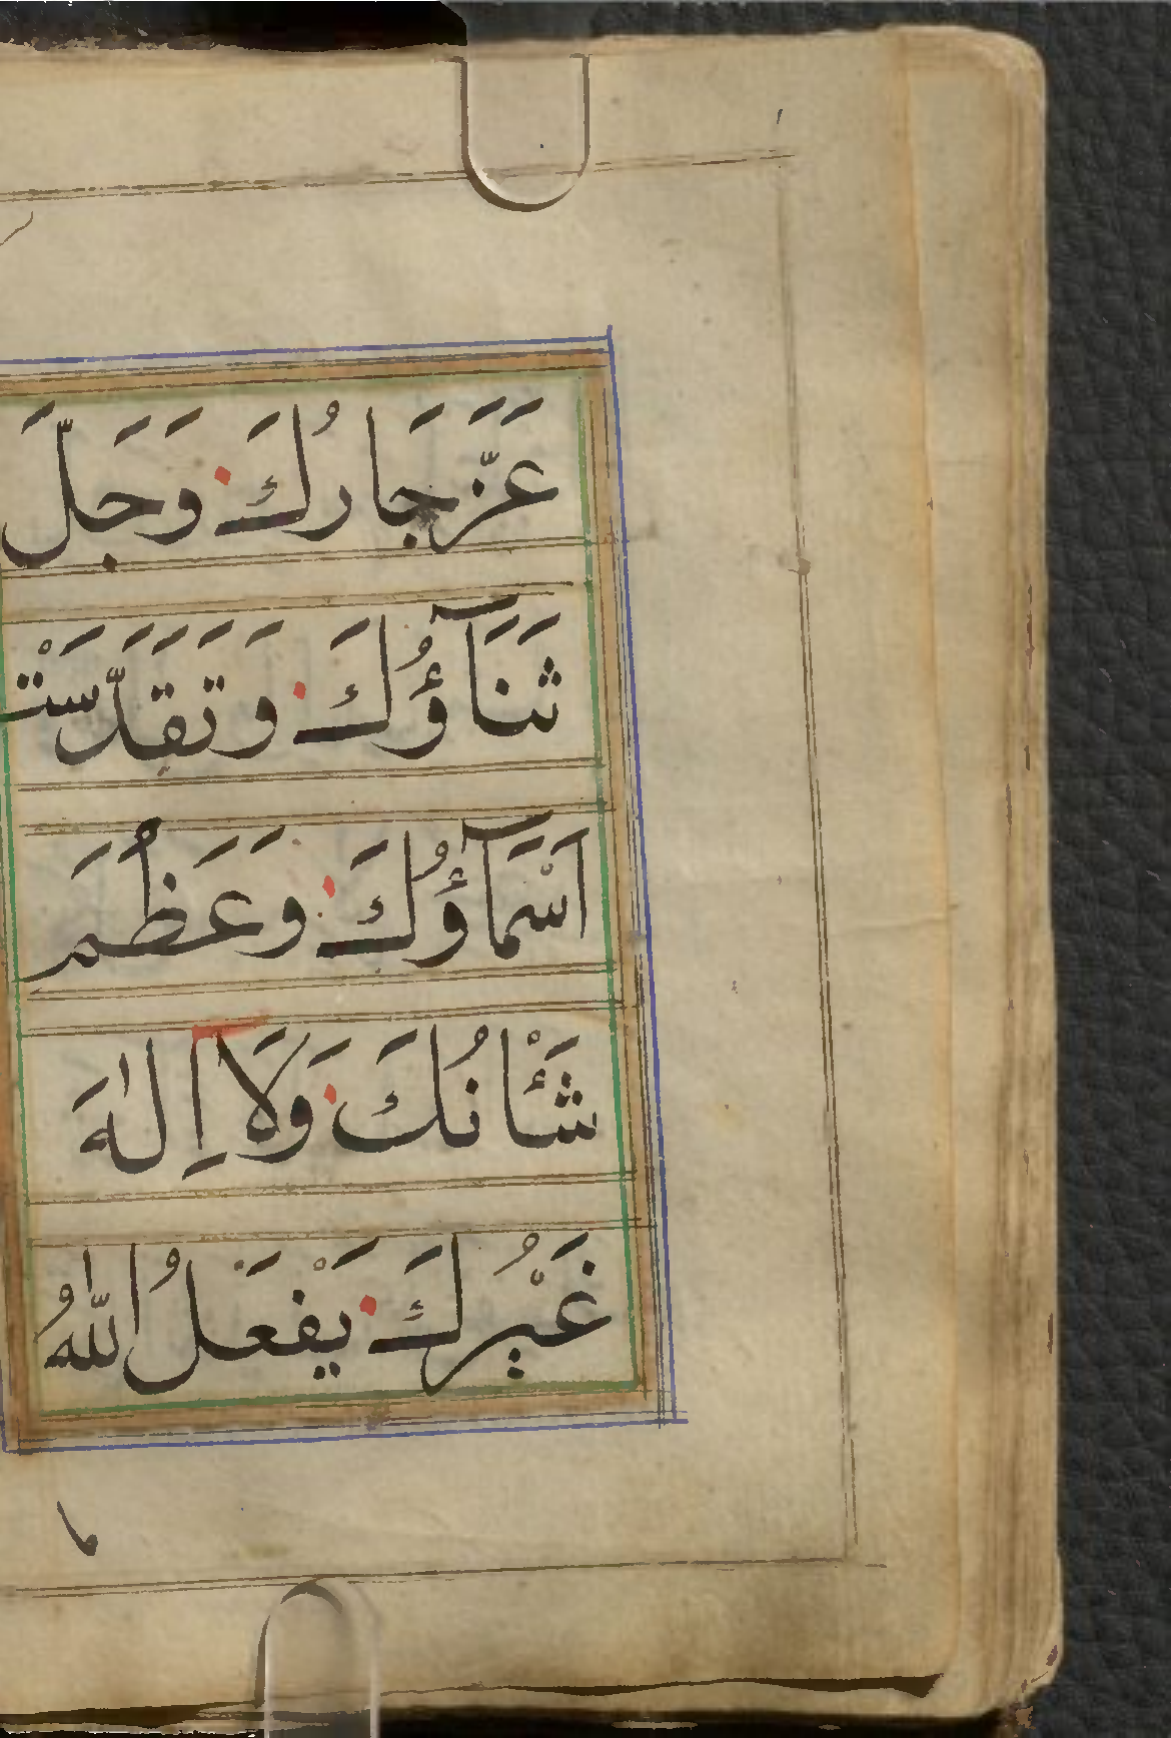 عَزَّ جَارُكَ وَجَلَّ
ثَنَآؤُكَ وَتَقَدَّسَتْ
اَسْمَآؤُكَ وَعَظُمَ
شَأْنُكَ وَلَا اِلٰهَ
غَيْرُكَ يَفْعَلُ اللّٰهُ
ما